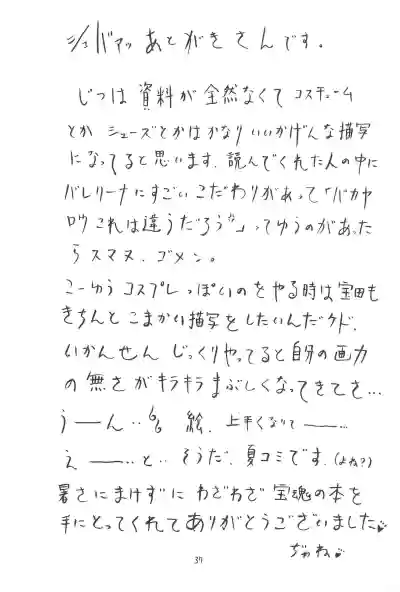 シュバァッ あとがきさんです。
じつは 資料が 全然なくて コスチューム
とか シューズとかはかなり いいかげんな描写
になってると思います。読んでくれた人の中に
バレリーナにすごいこだわりがあって「バカヤ
ロウこれは違うだろうな」ってゆうのがあった
らスマヌ、ゴメン。
こーゆう コスプレっぽいのをやる時は宝田も
きちんと こまかい描写をしたいんだケド、
いかんせん じっくりやってると自分の画力
の 無さが キラキラ まぶしくなってきてさ…
うーん‥ 絵、上手くなりてー‥
えー‥と‥ そうだ、夏コミです。(よね?)
暑さにまけずに わざわざ 宝魂の本を
手にとってくれて ありがとうございました
ぢゃね
37